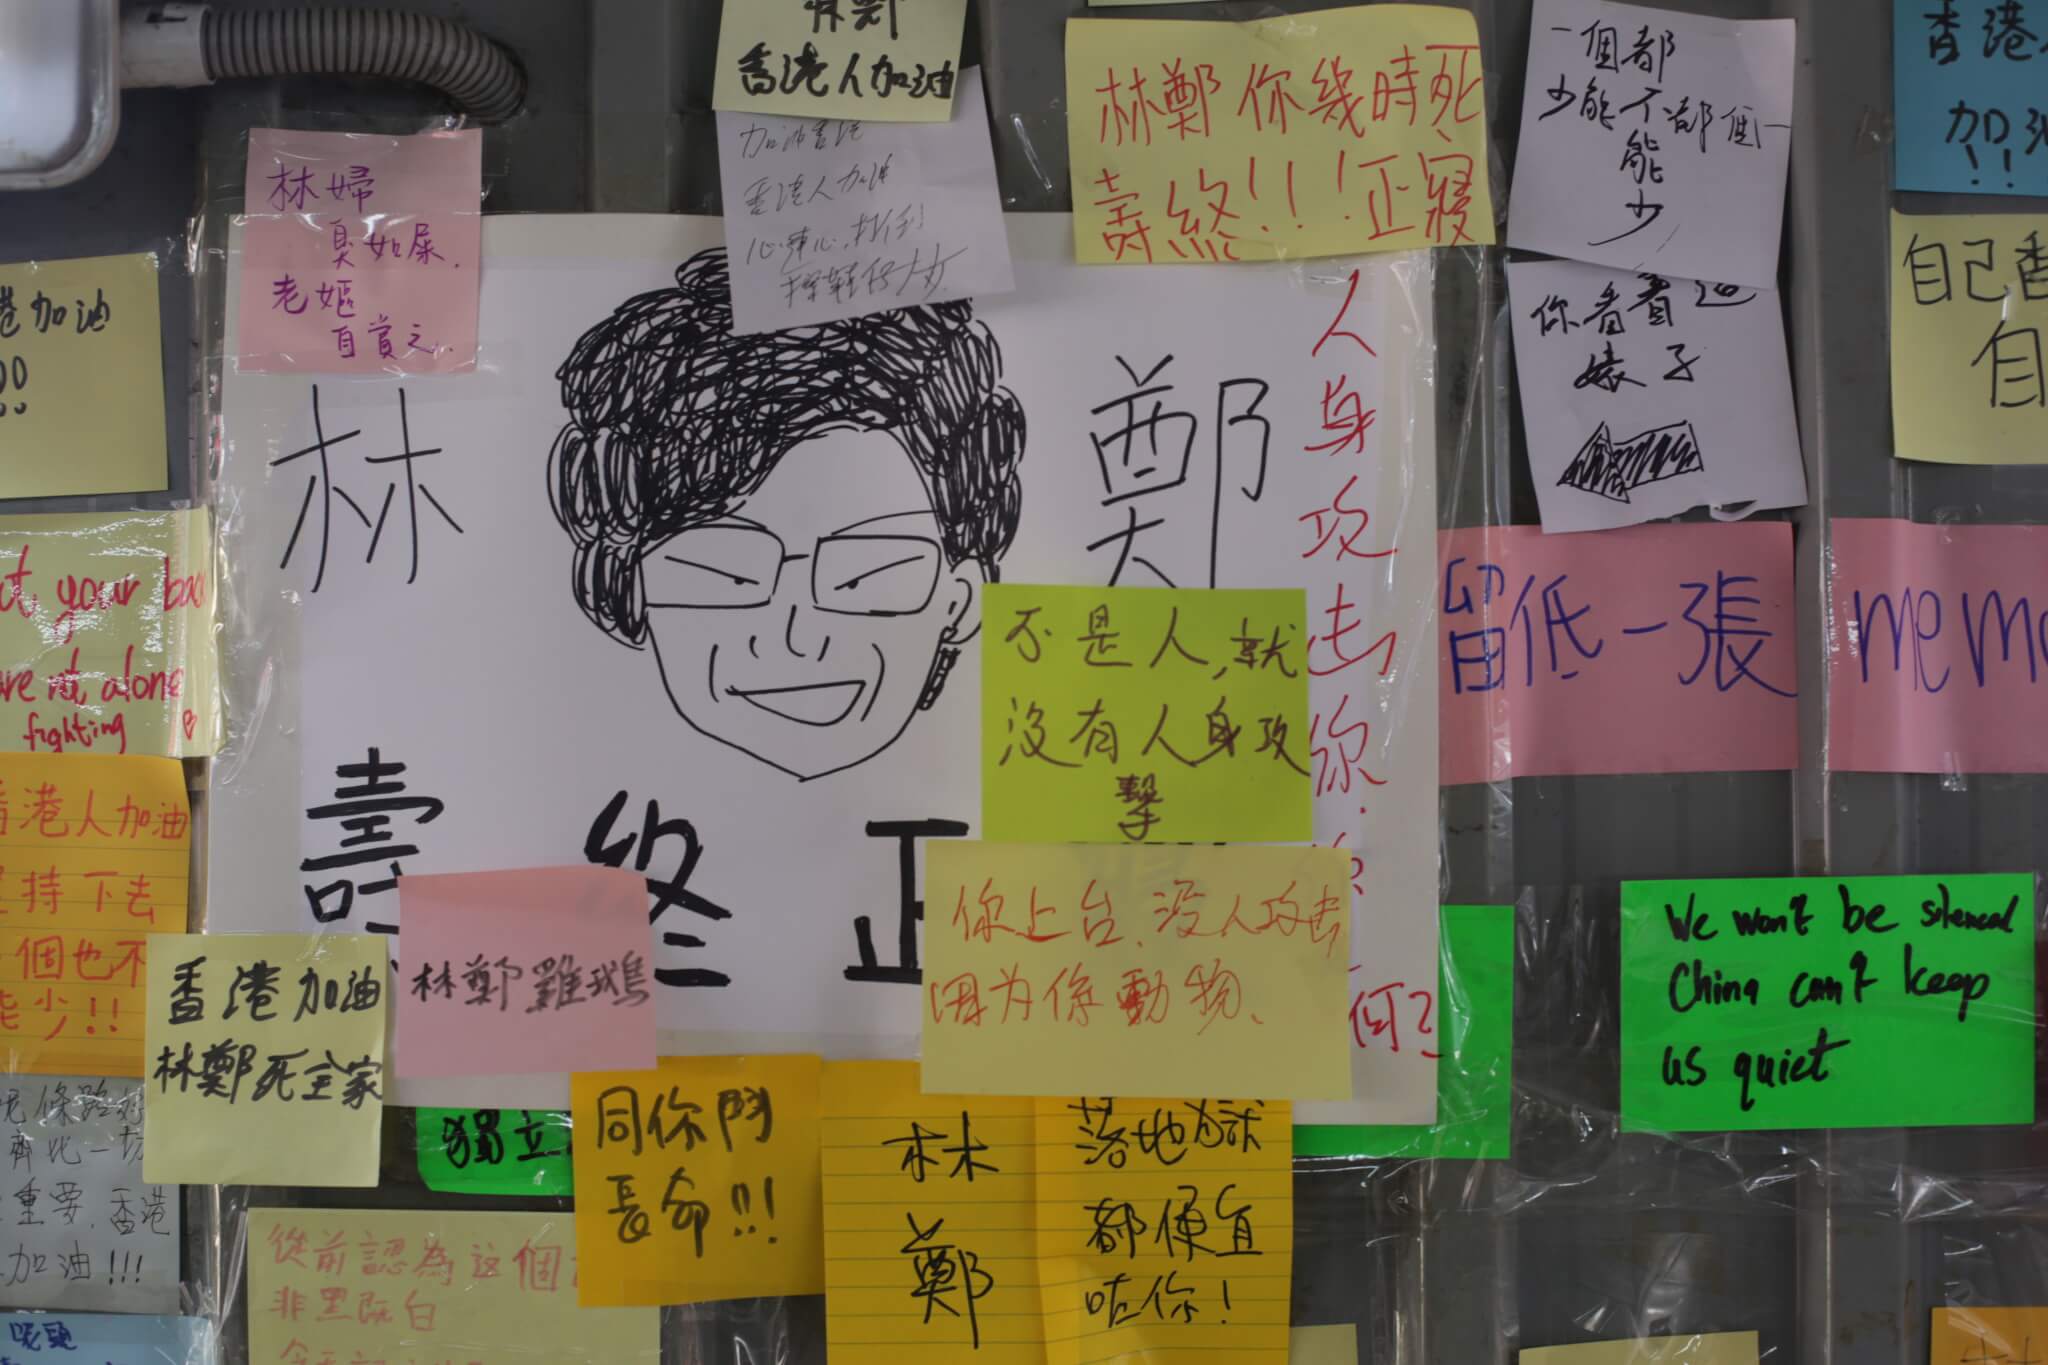 林鄭
香港人加油
加油香港
香港人加油
心連心,打倒
林婦
臭如屎.
老嫗
自賞之.
林鄭你幾時死
壽終!!!正寢
一個都
少能不都個一
能
少
你看看這
婊子
香港
加油
!!
自己香
自
港加油
!!
林
鄭
壽終正
人身攻击你
何?
不是人,就
没有人身攻
擊
你上台、没人攻击
因为係動物、
留低一張
memo
your back
are not alone
fighting
香港人加油
堅持下去
個也不
能少!!
香港加油
林鄭死全家
林鄭雞鵝
獨立
同你鬥
長命!!!
林
鄭
落地獄
都便宜
咗你!
We won't be silenced
China can't keep
us quiet
齊比一切
重要,香港
加油!!!
從前認為这個
非黑既白